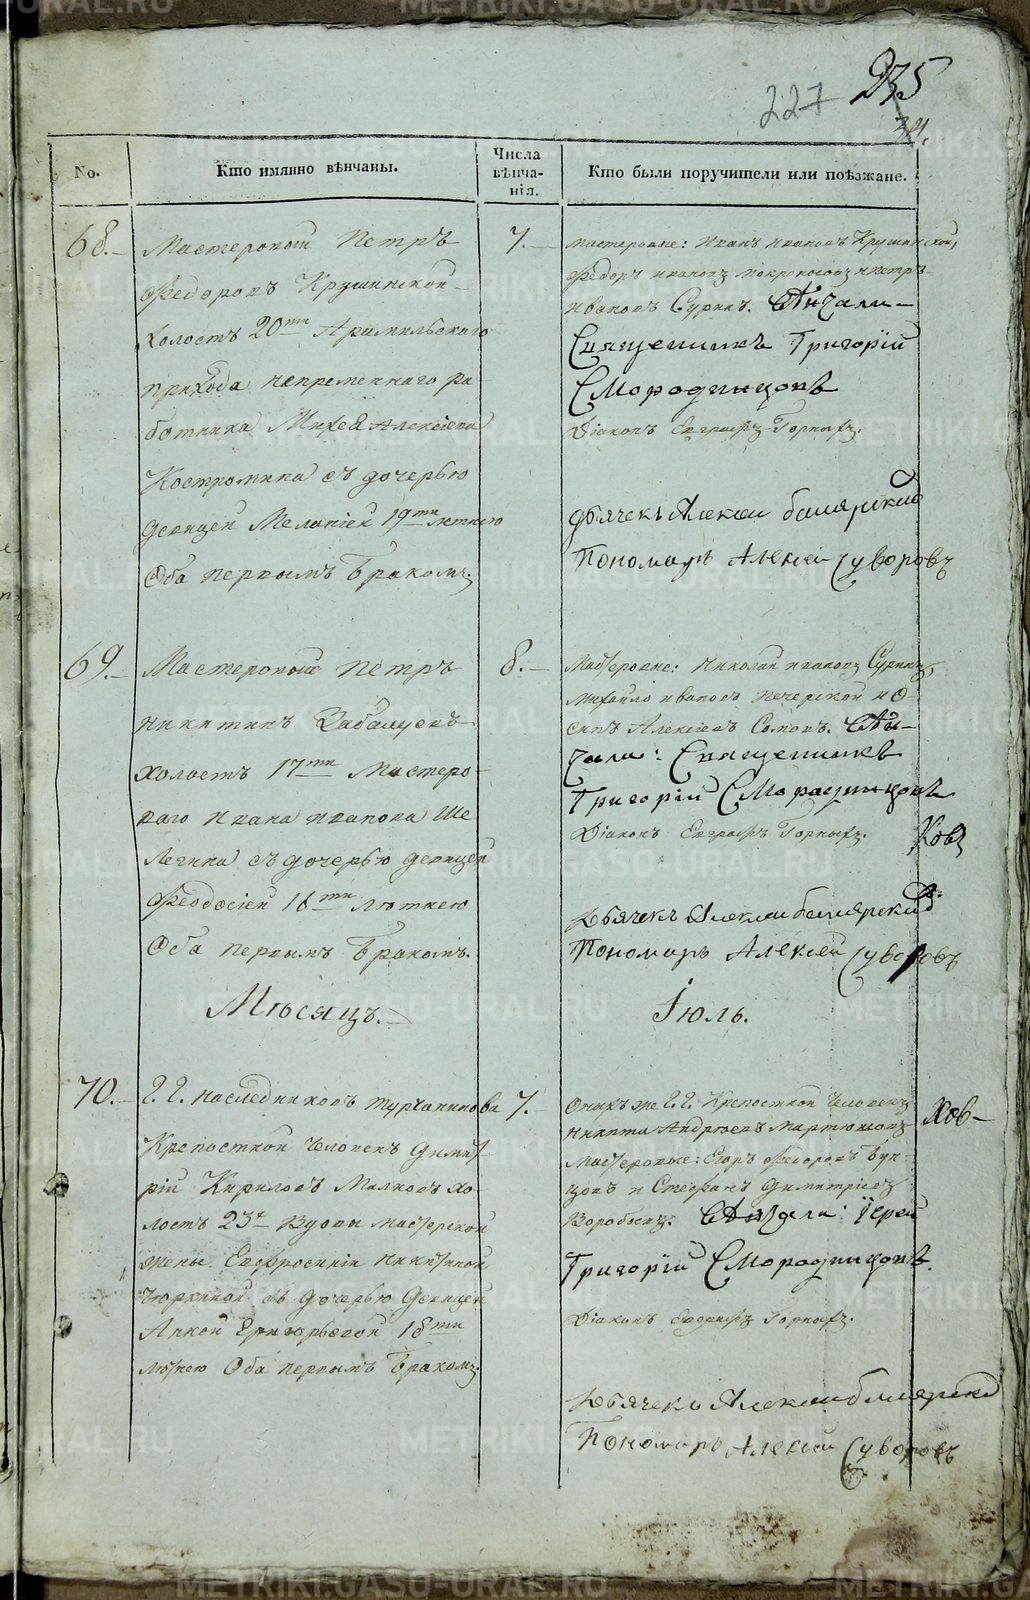 227 235
No.
Кто имянно вѣнчаны.
Числа
вѣнча-
нія.
Кто были поручители или поѣзжане.
68.
Мастеровой Петръ
Федоровъ Крушинской
холостъ 20ти Арамильскаго
прихода непременнаго ра-
ботника Михея Алексѣева
Костромина съ дочерью
девицей Меланіей 19ти летнею
Оба первымъ Бракомъ.
7.
Мастеровые: Иванъ Ивановъ Крушинской,
Федоръ Ивановъ Мокроносовъ и Петръ
Ивановъ Суринъ. Вѣнчали
Священникъ Григорій
Смородинцовъ
Діаконъ Евграфъ Горныхъ.
Дьячекъ Алексей Боярский
Пономарь Алексей Суворовъ
69.
Мастеровой Петръ
Никитинъ Забалуевъ
холостъ 17ти Мастеро-
ваго Ивана Иванова Ше
легина съ дочерью девицей
Феодосіей 16ти лѣтнею
Оба первымъ Бракомъ.
8.
Мастеровые: Николай Ивановъ Суринъ,
Михайло Ивановъ Печерской и О-
сипъ Алексѣевъ Сомовъ. Вѣн-
чали: Священникъ
Григорій Смородинцовъ
Діаконъ Евграфъ Горныхъ.
Дьячекъ Алексей Боярский
Пономарь Алексей Суворовъ
Мѣсяцъ. Іюль.
70.
Г. Г. Наследниковъ Турчанинова
Крепостной Человекъ Димит
рій Кириловъ Малковъ хо-
лостъ 23х Вдовы мастерской
жены Евфросиніи Никитиной
съ дочерью девицей
Анной Григорьевой 18ти
лѣтнею Оба первымъ Бракомъ
7.
Онихъ же Г. Г. Крепостной Человекъ
Никита Андреевъ Мартюшовъ
Мастеровые: Егоръ Федоровъ
и Стефанъ Димитріевъ
Воробьевъ. Вѣнчали: Іерей
Григорій Смородинцовъ.
Діаконъ Евграфъ Горныхъ.
Дьячекъ Алексей Боярский
Пономарь Алексей Суворовъ
METRIKI.GASO-URAL.RU